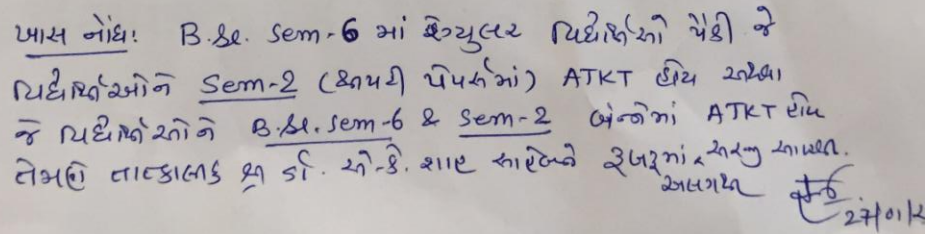 ખાસ નોંધઃ B.Sc. Sem-6 માં રેગ્યુલર વિદ્યાર્થીઓ પૈકી જે
વિદ્યાર્થીઓને Sem-2 (થીયરી પેપર્સમાં) ATKT હોય અથવા
જે વિદ્યાર્થીઓને B.Sc. Sem-6 & Sem-2 બંન્નેમાં ATKT હોય
તેમણે તાત્કાલીક ડૉ. એ.કે. શાહ સાહેબને રૂબરૂમાં અરજી આપવી.
અલગથી
27/01/2